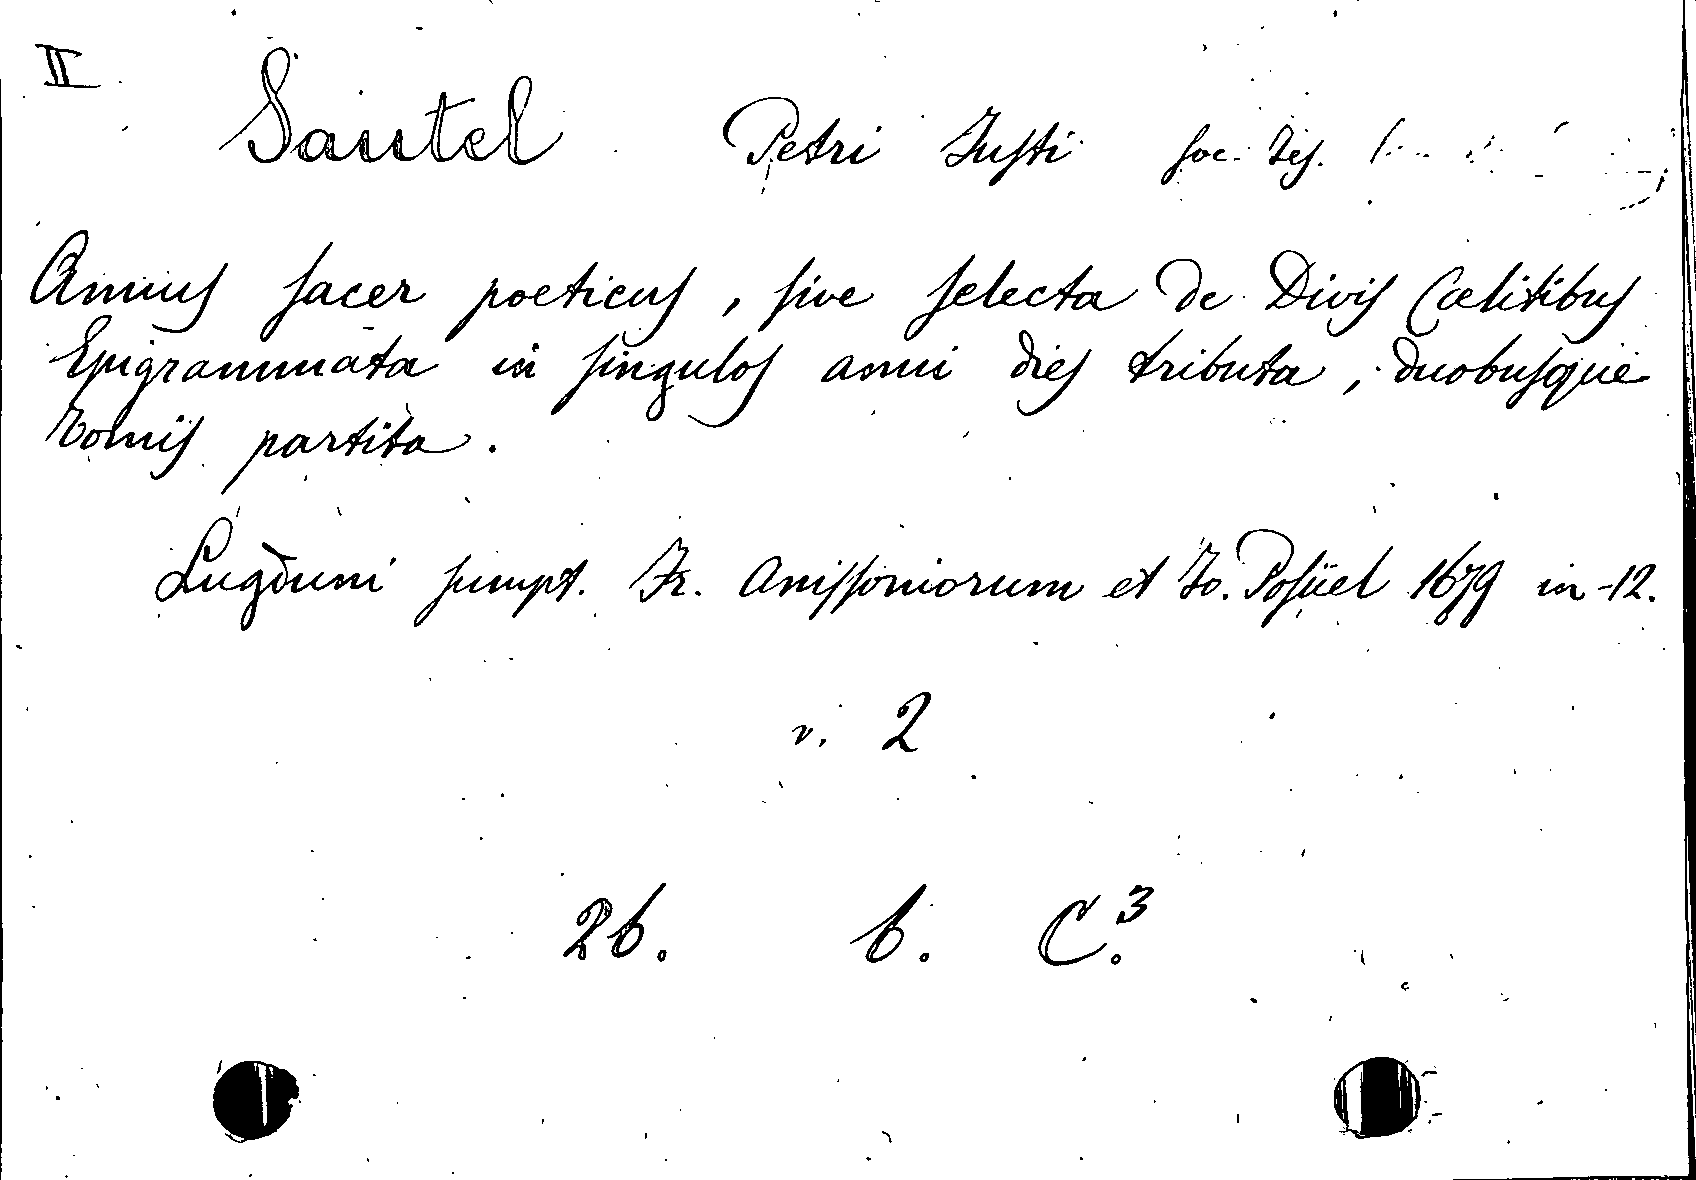 II
Sautel Petri Iusti soc. Ies.
Annus sacer poeticus, sive selecta de Divis Caelitibus
Epigrammata in singulos anni dies tributa, duobusque
tomis partita.
Lugduni sumpt. Fr. Anissoniorum et Jo. Posüel 1679 in-12.
v. 2
26. 6. C.3